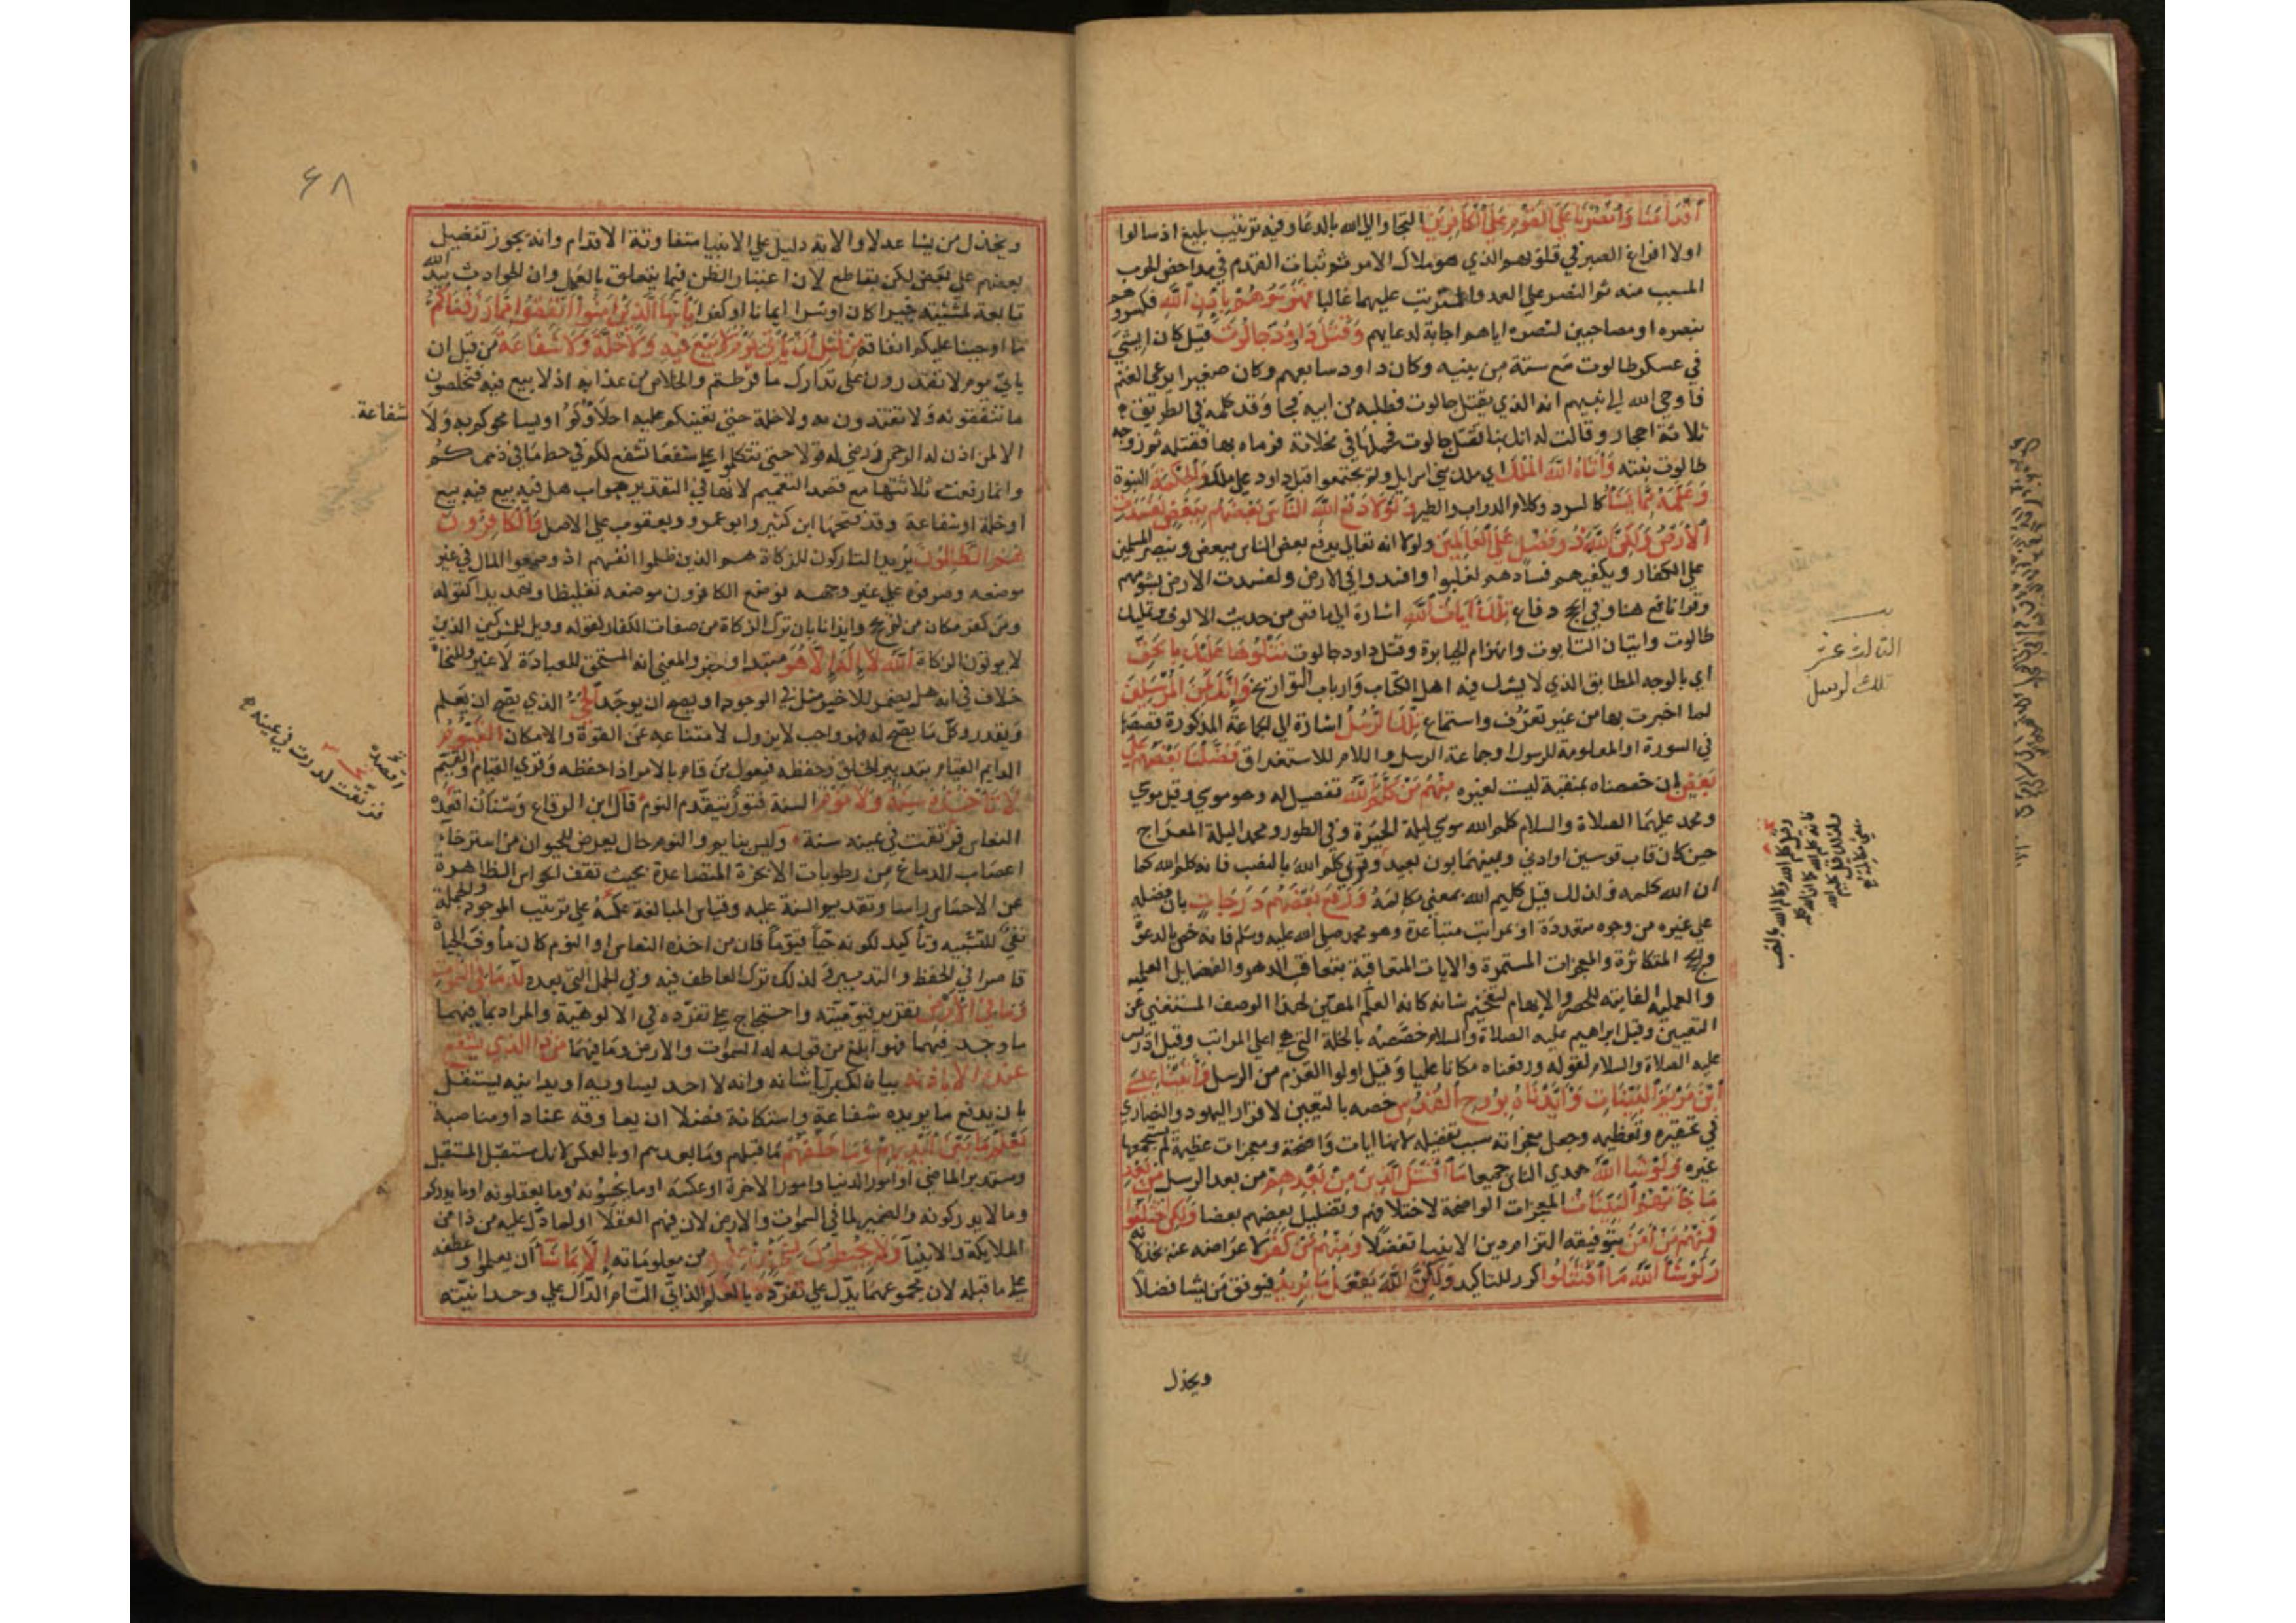 أقدامنا وانصرنا على القوم على الكافرين التجاوا الي الله بالدعا وفيه ترتيب بليغ اذ سالوا
اولا افراغ الصبر في قلوبهم الذي هو ملاك الامر ثم ثبات القدم في مداحض الحرب
المسبب منه ثم النصر علي العدو المترتب عليهما غالبا فهزموهم باذن الله فكسروهم
بنصره او مصاحبين لنصره اياهم اجابة لدعايهم وقتل داود جالوت قيل كان ايشي
في عسكر طالوت مع ستة من بنيه وكان داود سابعهم وكان صغيرا يرعي الغنم
فاوحي الله الي نبيهم انه الذي يقتل جالوت فطلبه من ابيه فجا وقد كلمه في الطريق
ثلاثة احجار وقالت له انك بنا تقتل جالوت فحملها في مخلاته فرماه بها فقتله ثم زوجه
طالوت بنته وآتاه الله الملك اي ملك بني اسرايل ولم يجتمعوا قبل داود علي ملك والحكمة النبوة
وعلمه مما يشا كالسرد وكلام الدواب والطير ولولا دفع الله الناس بعضهم ببعض لفسدت
الارض ولكن الله ذو فضل علي العالمين ولولا انه تعالي يدفع بعض الناس ببعض وينصر المسلمين
علي الكفار ويكف بهم فسادهم لغلبوا وافسدوا في الارض ولفسدت الارض بشومهم
وقرا نافع هنا وفي الحج دفاع تلك آيات الله اشارة الي ما قص من حديث الالوف وتمليك
طالوت واتيان التابوت وانهزام الجبابرة وقتل داود جالوت نتلوها عليك بالحق
اي بالوجه المطابق الذي لا يشك فيه اهل الكتاب وارباب التواريخ وانك لمن المرسلين
لما اخبرت بها من غير تعرف واستماع تلك الرسل اشارة الي الجماعة المذكورة قصصها
في السورة او المعلومة للرسول او جماعة الرسل واللام للاستغراق فضلنا بعضهم علي
بعض بان خصصناه بمنقبة ليست لغيره منهم من كلم الله تفصيل له وهو موسي وقيل موسي
ومحمد عليهما الصلاة والسلام كلم الله موسي ليلة الحيرة وفي الطور ومحمد ليلة المعراج
حين كان قاب قوسين او ادني وبينهما بون بعيد وقري كلم الله بالنصب فانه كلم الله كما
ان الله كلمه ولذلك قيل كليم الله بمعني مكالمه ورفع بعضهم درجات بان فضله
علي غيره من وجوه متعددة او بمراتب متباعدة وهو محمد صلي الله عليه وسلم فانه خص بالدعوة
والحجج المتكاثرة والمعجزات المستمرة والايات المتعاقبة بتعاقب الدهر والفضايل العلمية
والعملية الفايتة للحصر والابهام لتفخيم شانه كانه العلم المعين لهذا الوصف المستغني عن
التعيين وقيل ابراهيم عليه الصلاة والسلام خصصه بالخلة التي هي اعلي المراتب وقيل ادريس
عليه الصلاة والسلام لقوله ورفعناه مكانا عليا وقيل اولوا العزم من الرسل وآتينا عيسي
ابن مريم البينات وايدناه بروح القدس خصه بالتعيين لافراط اليهود والنصاري
في تحقيره وتعظيمه وجعل معجزاته سبب تفضيله لانها ايات واضحة ومعجزات عظيمة لم يستجمعها
غيره ولو شا الله هدي الناس جميعا ما اقتتل الذين من بعدهم من بعد الرسل من بعد
ما جاتهم البينات المعجزات الواضحة لاختلافهم وتضليل بعضهم بعضا ولكن اختلفوا
فمنهم من آمن بتوفيقه التزام دين الانبيا تفضلا ومنهم من كفر لاعراضه عنه بخذلانه
ولو شا الله ما اقتتلوا كرر للتاكيد ولكن الله يفعل ما يريد فيوفق من يشا فضلا
ويخذل
الثالث عشر
تلك الرسل
٦٨
ويخذل من يشا عدلا والاية دليل علي الانبيا متفاوتة الاقدام وانه يجوز تفضيل
بعضهم علي بعض لكن بقاطع لان اعتبار الظن فيما يتعلق بالعمل وان الحوادث بيد الله
تابعة لمشيته خيرا كان او شرا ايمانا او كفرا يايها الذين امنوا انفقوا مما رزقناكم
ما اوجبنا عليكم انفاقه من قبل ان ياتي يوم لا بيع فيه ولا خلة ولا شفاعة من قبل ان
ياتي يوم لا تقدرون علي تدارك ما فرطتم والخلاص من عذابه اذ لا بيع فيه فتحصلون
ما تنفقونه ولا تفتدون به ولا خلة حتي تعينكم عليه اخلاؤكم او يسامحوكم به ولا
شفاعة
الا لمن اذن له الرحمن ورضي له قولا حتي تتكلوا علي شفعا تشفع لكم في حط ما في ذممكم
وانما رفعت ثلاثتها مع قصد التعميم لانها في التقدير جواب هل فيه بيع فيه بيع
او خلة او شفاعة وقد فتحها ابن كثير وابو عمرو ويعقوب علي الاصل والكافرون
هم الظالمون يريد التاركون للزكاة هم الذين ظلموا انفسهم اذ وضعوا المال في غير
موضعه وصرفوه علي غير وجهه فوضع الكافرون موضعه تغليظا وتهديدا كقوله
ومن كفر مكان من لم يحج وايذانا بان ترك الزكاة من صفات الكفار لقوله وويل للمشركين الذين
لا يوتون الزكاة الله لا اله الا هو مبتدا وخبر والمعني انه المستحق للعبادة لا غير وللنحاة
خلاف في انه هل يضمر للا خبر مثل في الوجود او يصح ان يوجد الحي الذي يصح ان يعلم
ويقدر وكل ما يصح له فهو واجب لا يزول لامتناعه عن القوة والامكان القيوم
الدايم القيام بتدبير الخلق وحفظه فيعول من قام بالامر اذا حفظه وقري القيام والقيم
لا تاخذه سنة ولا نوم السنة فتور يتقدم النوم قال ابن الرقاع وسنان اقصده
النعاس فرنقت في عينه سنة وليس بنايم والنوم حال يعرض للحيوان من استرخا
اعصاب الدماغ من رطوبات الابخرة المتصاعدة بحيث تقف الحواس الظاهرة
عن الاحساس راسا وتقديم السنة عليه وقياس المبالغة عكسه علي ترتيب الموجود والجملة
نفي للتشبيه وتاكيد لكونه حيا قيوما فان من اخذه النعاس او النوم كان ماوف الحياة
قاصرا في الحفظ والتدبير ولذلك ترك العاطف فيه وفي الجمل التي بعده له ما في السموات
وما في الارض تقرير لقيوميته واحتجاج علي تفرده في الالوهية والمراد بما فيهما
ما وجد فيهما فهو ابلغ من قوله له السموات والارض وما فيهما من ذا الذي يشفع
عنده الا باذنه بيان لكبريا شانه وانه لا احد يساويه او يدانيه يستقل
بان يدفع ما يريده شفاعة واستكانة فضلا ان يعاوقه عنادا ومناصبة
يعلم ما بين ايديهم وما خلفهم ما قبلهم وما بعدهم او بالعكس لانك مستقبل المستقبل
ومستدبر الماضي او امور الدنيا وامور الاخرة او عكسه او ما يحسونه وما يعقلونه او ما يدركونه
وما لا يدركونه والضمير لما في السموات والارض لان فيهم العقلا او لما دل عليه من ذا من
الملايكة والانبيا ولا يحيطون بشي من علمه من معلوماته الا بما شا ان يعلموا وعطفه
علي ما قبله لان مجموعهما يدل علي تفرده بالعلم الذاتي التام الدال علي وحدانيته